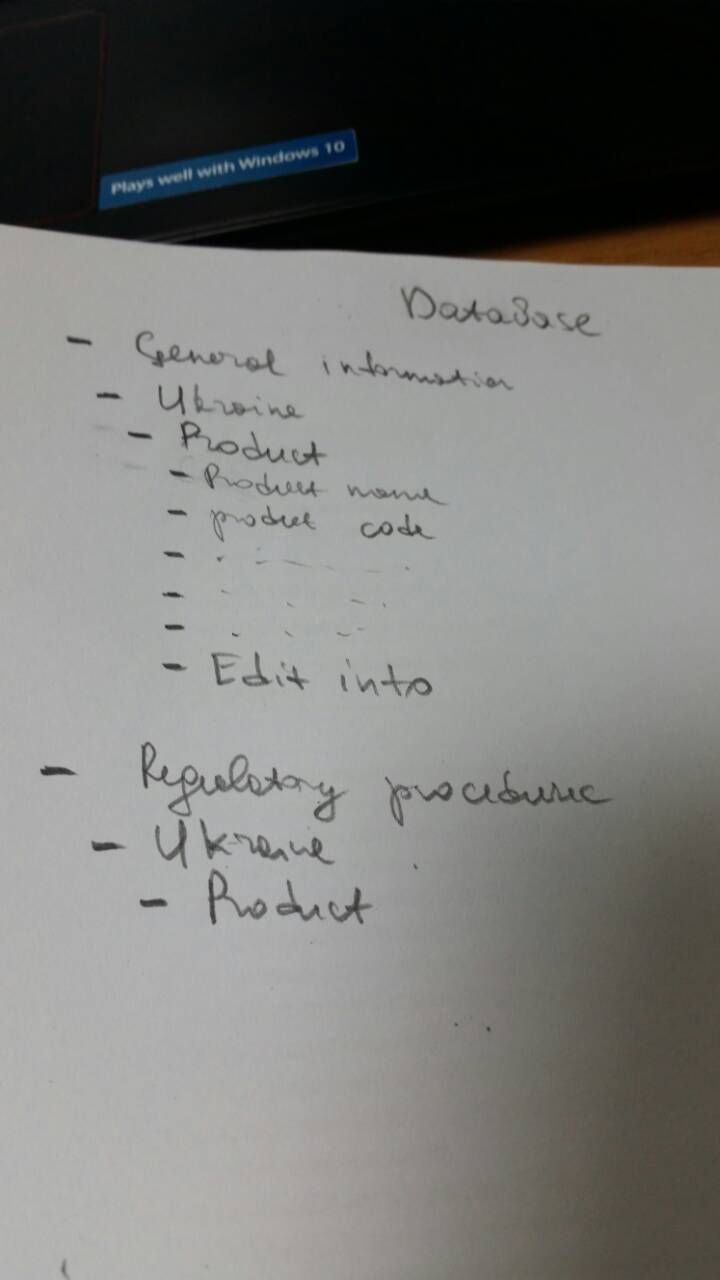 Plays well with Windows 10
DataBase
- General information
- Ukraine
- Product
- Product name
- product code
-
-
-
- Edit into
- Regulatory procedure
- Ukraine
- Product